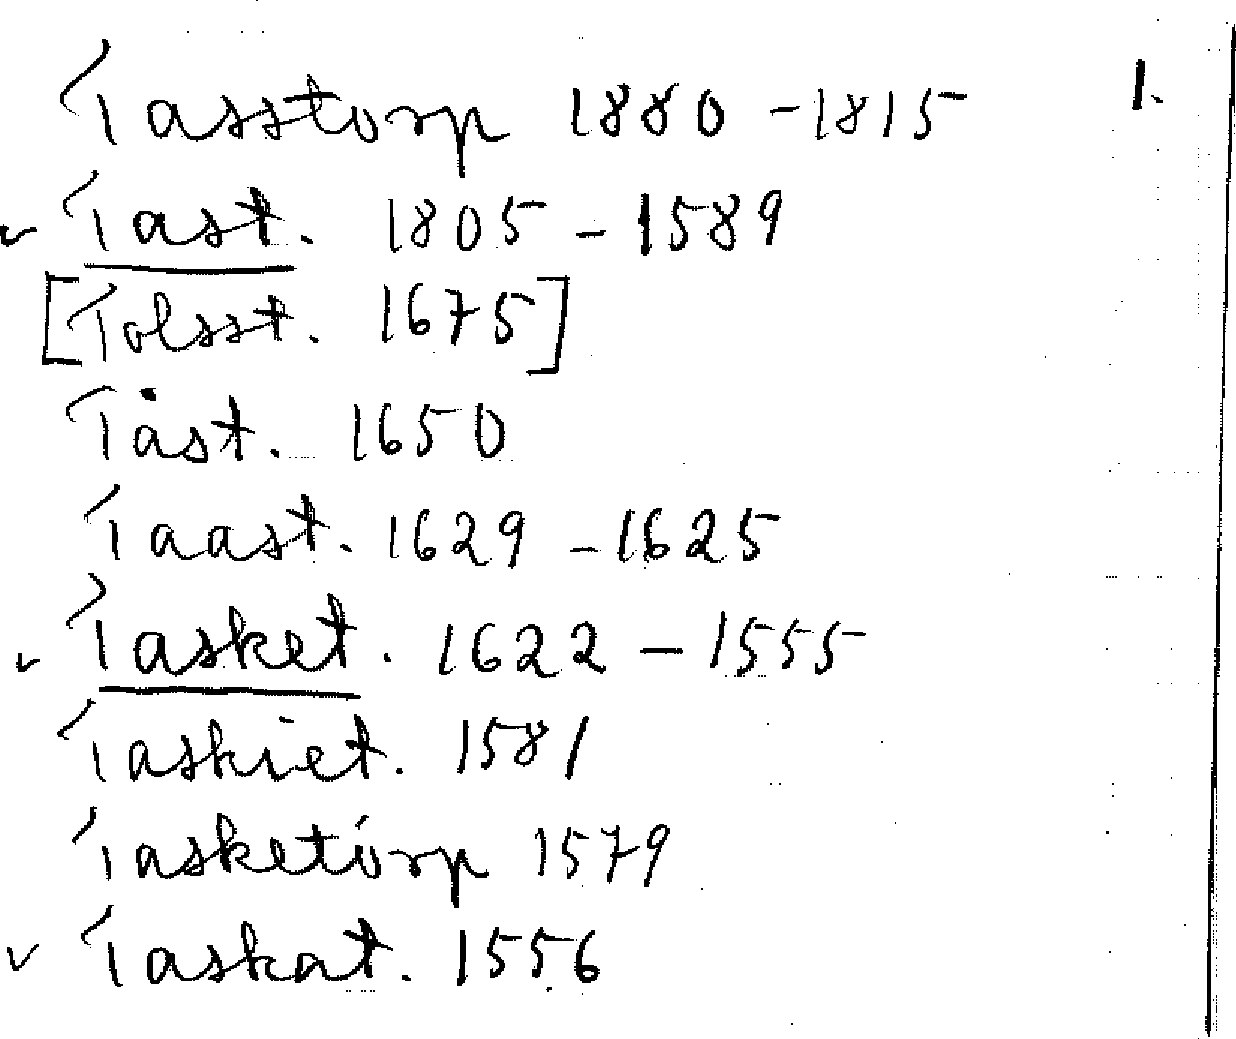 Tasstorp 1880 - 1815 1.
v Tast. 1805 - 1589
[Tolsst. 1675]
Tåst. 1650
Taast. 1629 - 1625
v Tasket. 1622 - 1555
Taskiet. 1581
Tasketorp 1579
v Taskat. 1556